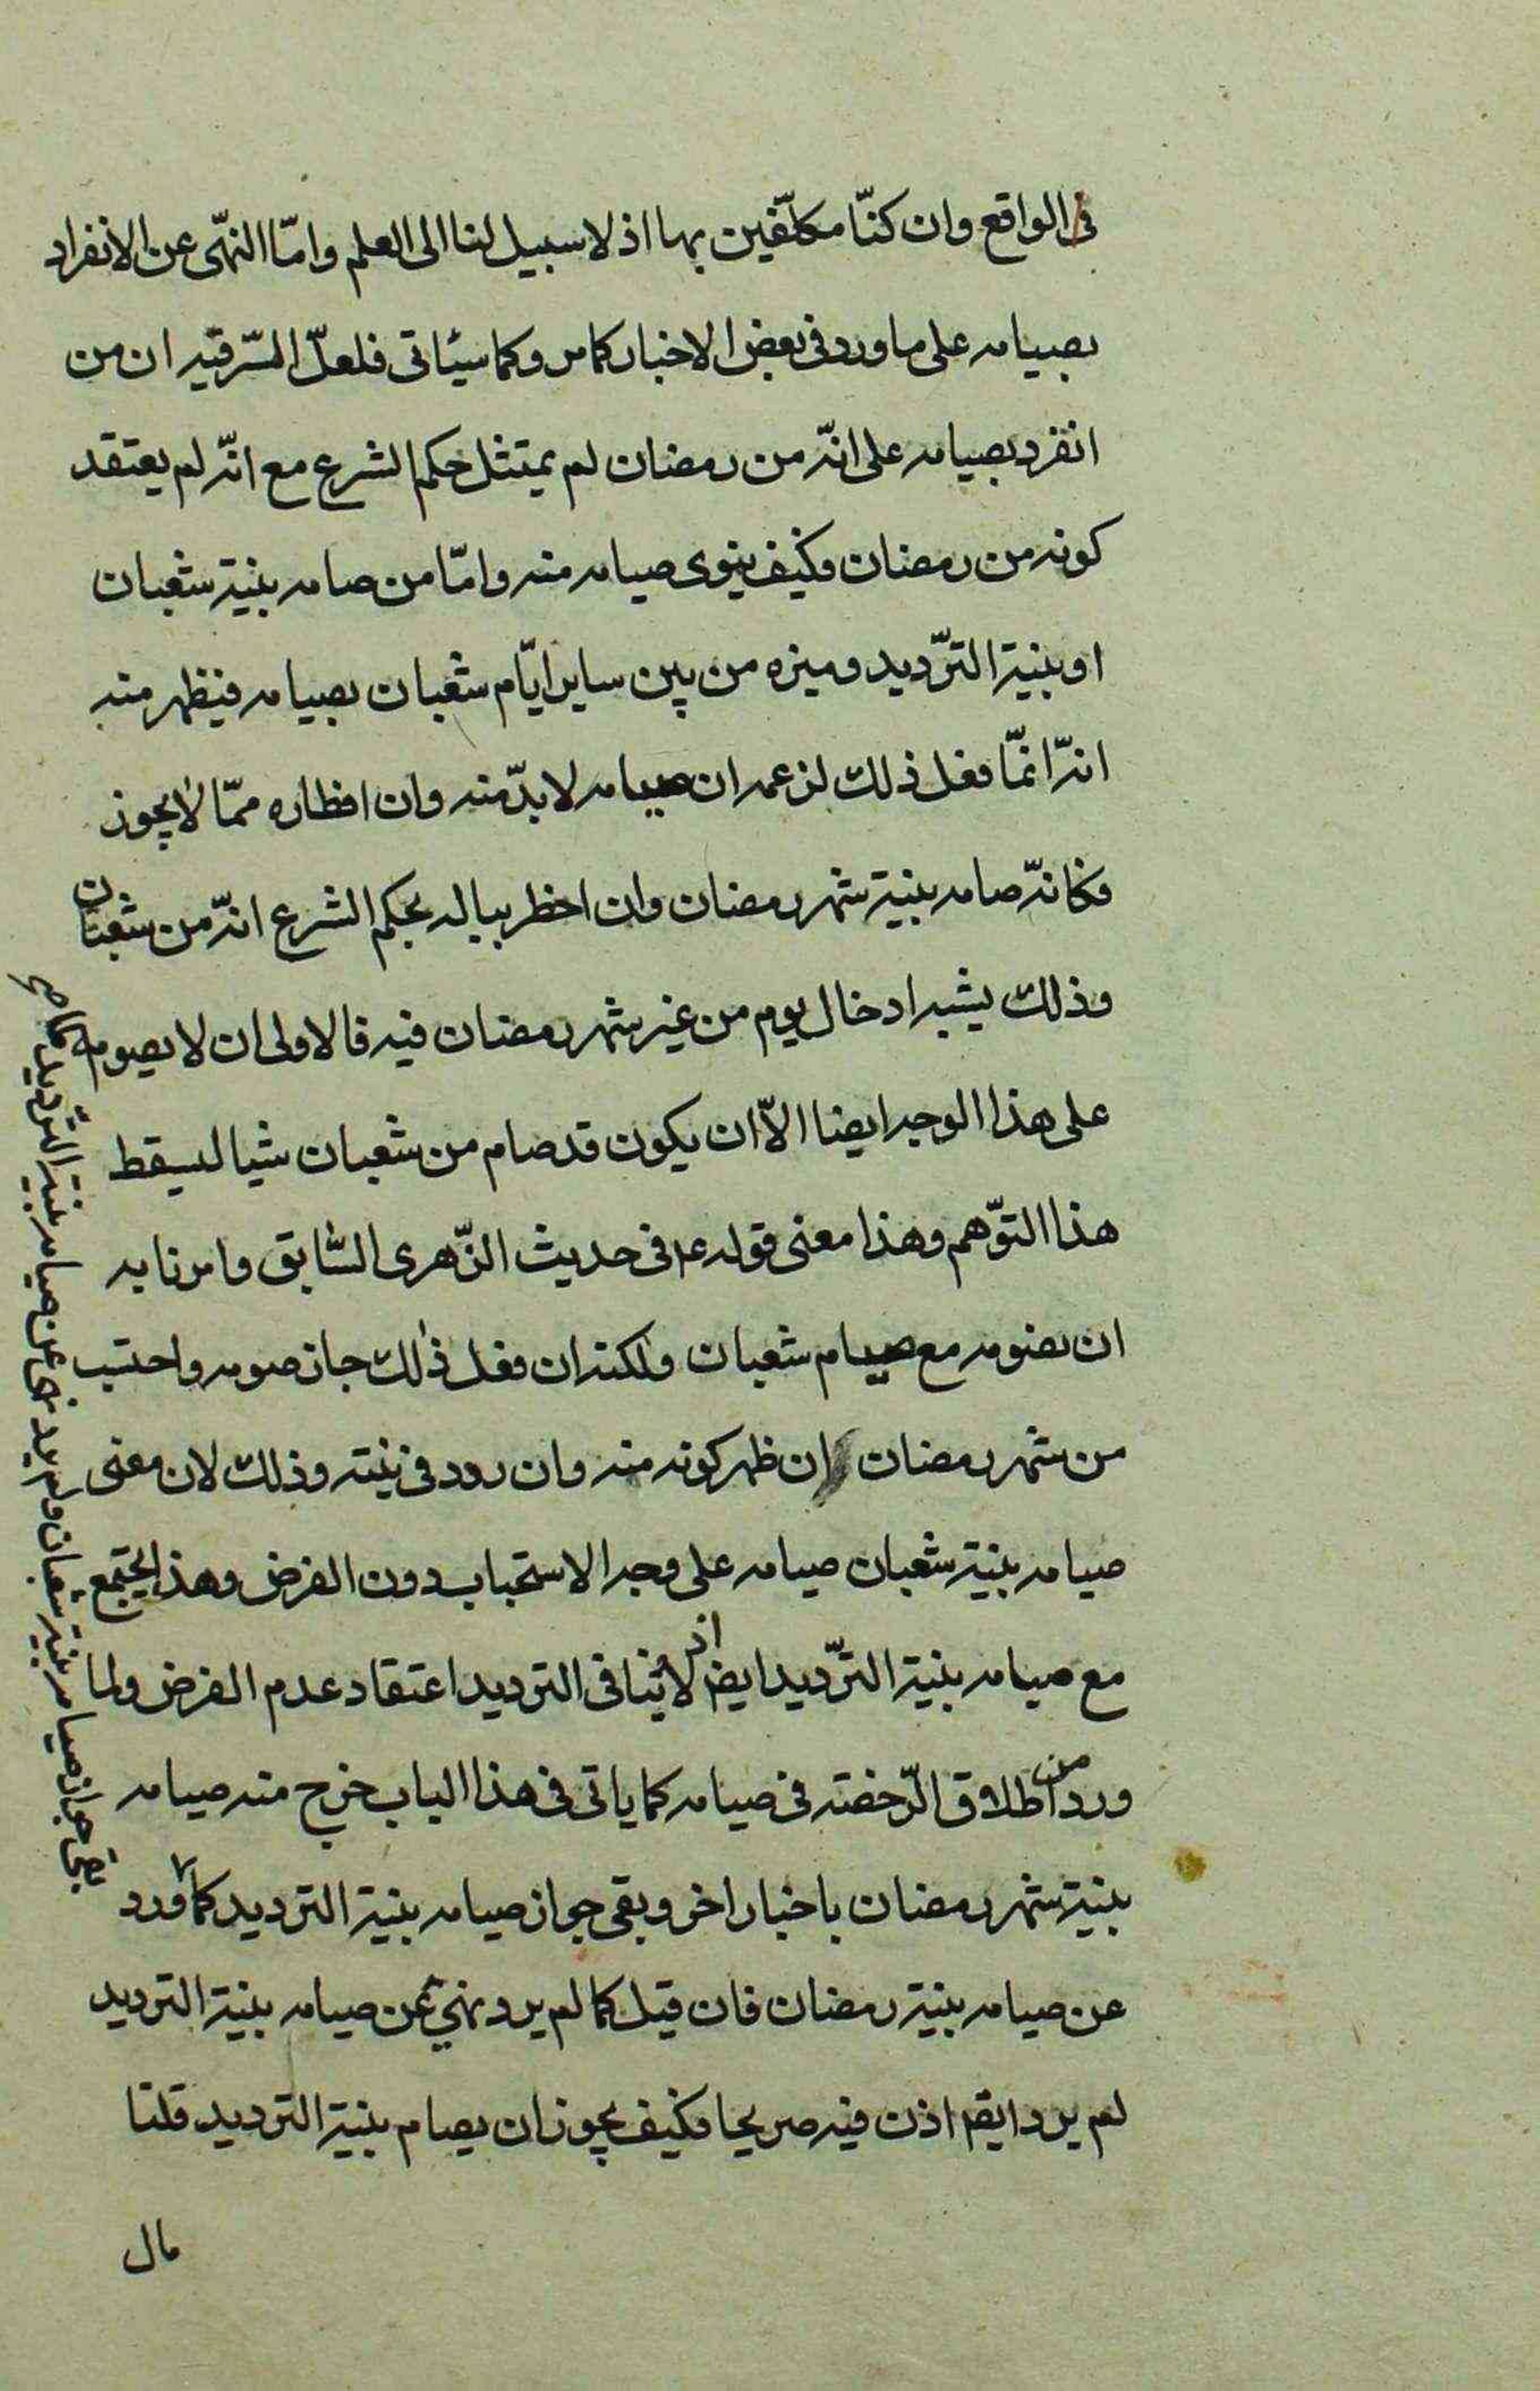 فى الواقع وان كنّا مكلّفين بها اذ لا سبيل لنا الى العلم وامّا النهّى عن الانفراد
بصيامه على ما ورد فى بعض الاخبار كما مر وكما سيئاتى فلعلّ السّر فيه ان من
انفرد بصيامه على انّه من رمضان لم يمتثل حكم الشرع مع انّه لم يعتقد
كونه من رمضان فكيف ينوى صيامه منه وامّا من صامه بنية شعبان
او بنية التّرديد وميزه من بين ساير ايّام شعبان بصيامه فيظهر منه
انّه انمّا فعل ذلك لزعمه ان صيامه لا بدّ منه وان افطاره ممّا لا يجوز
فكانّه صامه بنية شهر رمضان وان اخطر بباله بحكم الشرع انّه من شعبان
وذلك يشبه ادخال يوم من غير شهر رمضان فيه فالاولى ان لا يصومه
على هذا الوجه ايضا الاّ ان يكون قد صام من شعبان شيا ليسقط
هذا التوّهم وهذا معنى قوله ع فى حديث الزّهرى السّابق وامرنا به
ان نصومه مع صيام شعبان ولكنه ان فعل ذلك جاز صومه واحتسب
من شهر رمضان ان ظهر كونه منه وان ردد فى نيته وذلك لان معنى
صيامه بنية شعبان صيامه على وجه الاستحباب دون الفرض وهذا يجتمع
مع صيامه بنية التّرديد ايضا اذ لا ينافى الترديد اعتقاد عدم الفرض ولما
ورد من اطلاق الرّخصته فى صيامه كما ياتى فى هذا الباب خرج منه صيامه
بنية شهر رمضان باخبار اخر وبقى جواز صيامه بنية الترديد كما ورد
عن صيامه بنية رمضان فان قيل كما لم يرد نهي عن صيامه بنية الترديد
لم يرد ايضا اذن فيه صريحا فكيف يجوز ان يصام بنية الترديد قلنا
مال
بقى جواز صيامه بنية شعبان ولم يرد نهى عن صيامه بنية الترّديد كما